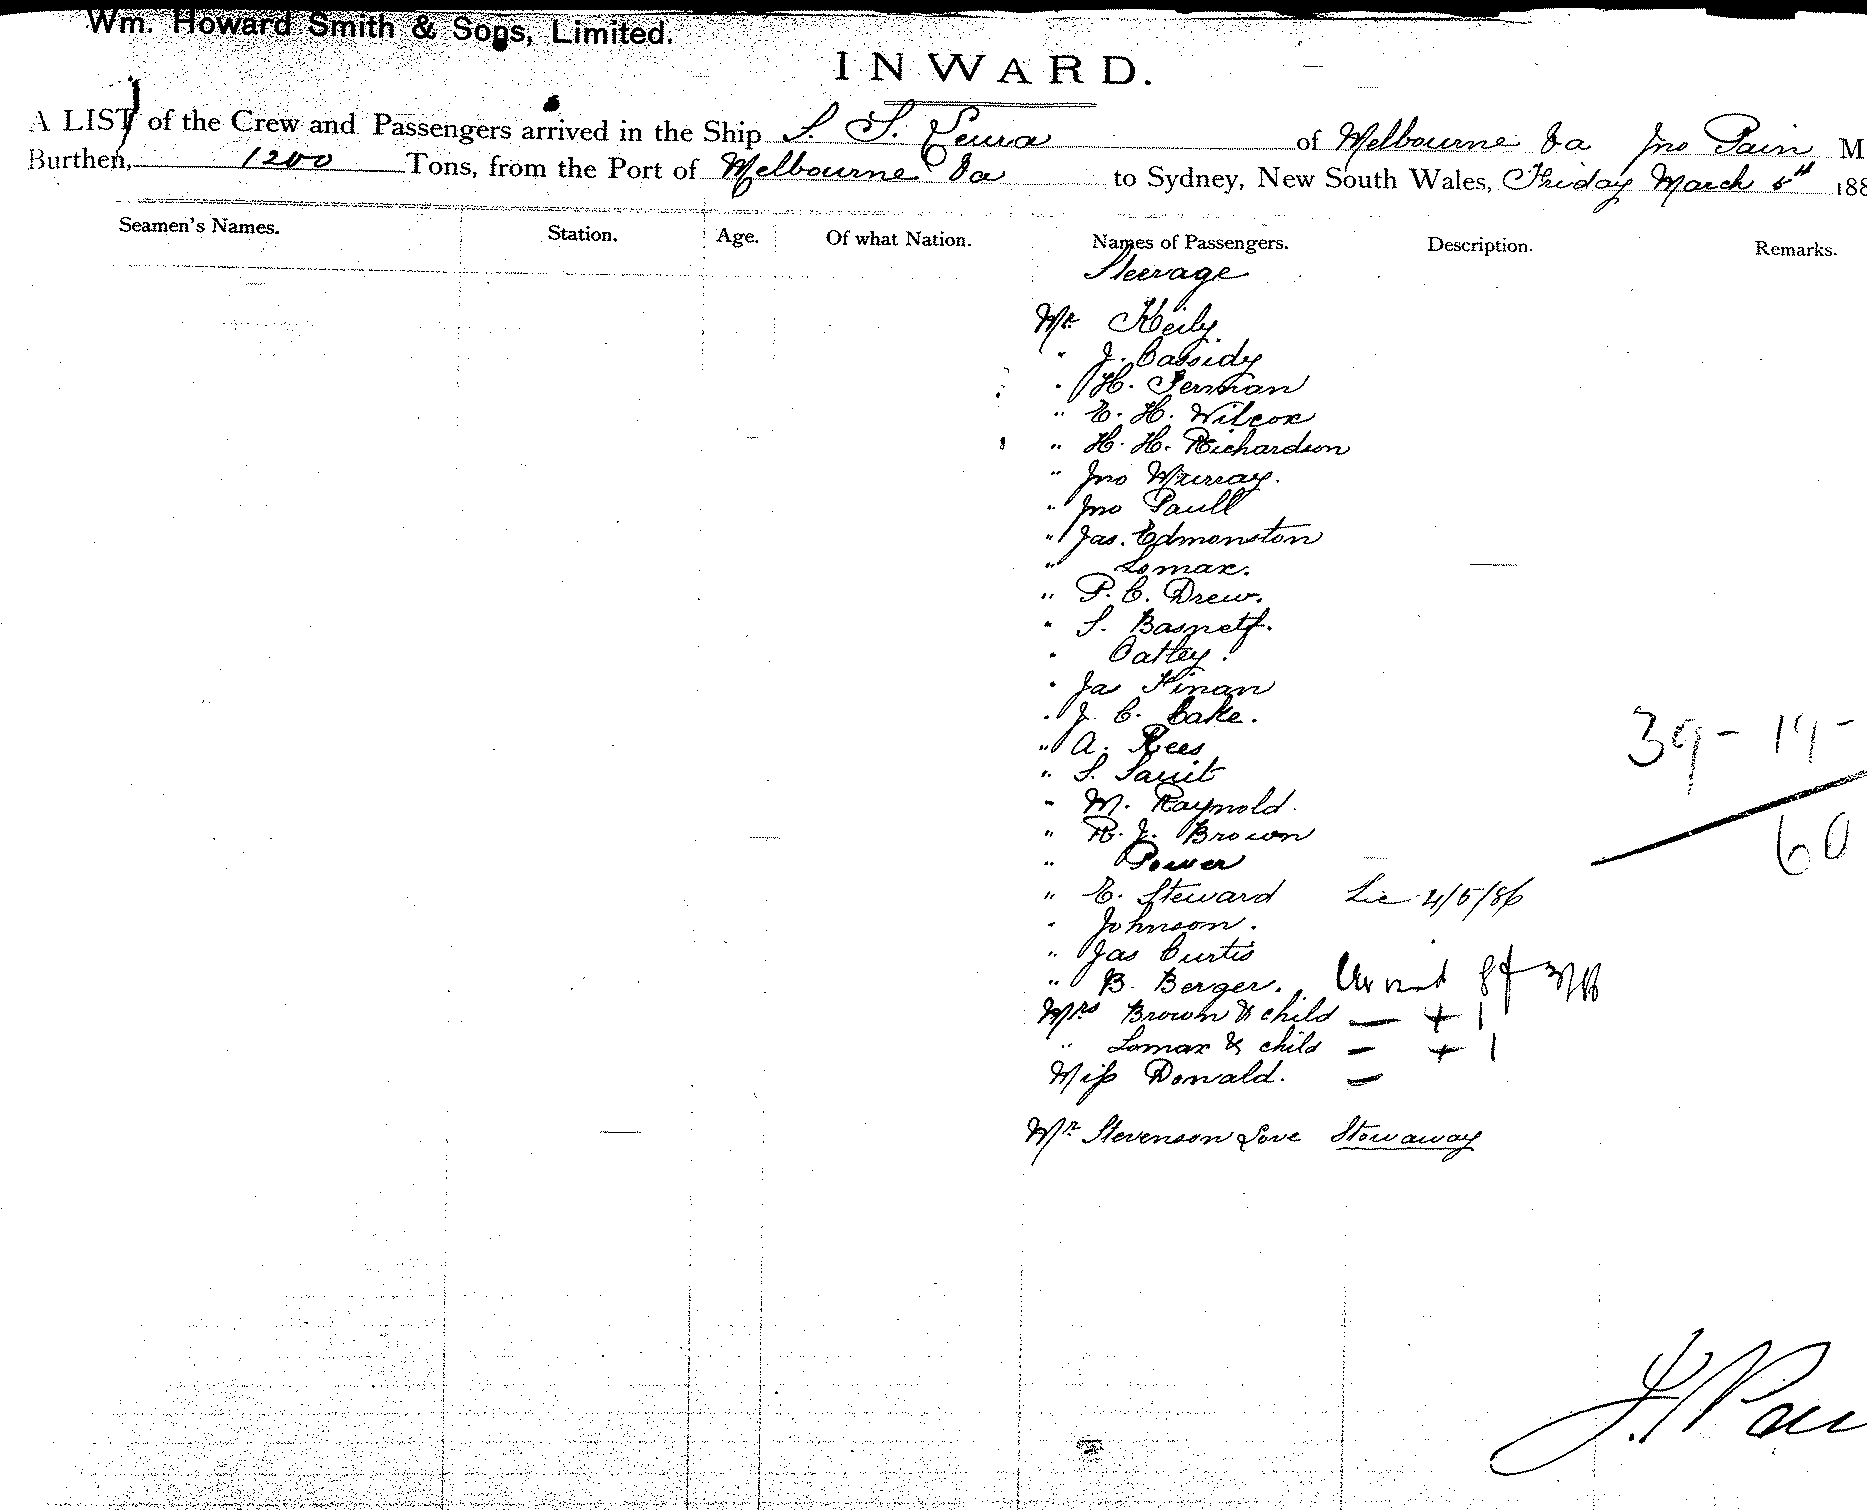 Wm. Howard Smith & Sons, Limited.
INWARD.
A LIST of the Crew and Passengers arrived in the Ship S. S. Leura of Melbourne Via Jno Pain M
Burthen, 1200 Tons, from the Port of Melbourne Via to Sydney, New South Wales, Friday March 5th 188
Seamen's Names. Station. Age. Of what Nation. Names of Passengers. Description. Remarks.
Steerage
Mr Keily
" J. Cassidy
" H. Jerman
" E. H. Wilcox
" H. H. Richardson
" Jno Murray.
" Jno Paull
" Jas. Edmonston
" Lomax.
" P. C. Drew.
" S. Basnett.
" Oatley.
" Ja Kinan
" J. C. Cake.
" A. Rees
" S.
" M. Raynold.
" R. J. Brown
" Power
" E. Steward Lic 4/5/86
" Johnson.
" Jas Curtis
" B. Berger.
Mrs Brown & child — + 1
" Lomax & child — + 1
Miss Donald. —
Mr Stevenson Love Stowaway
39 - 19 -
60